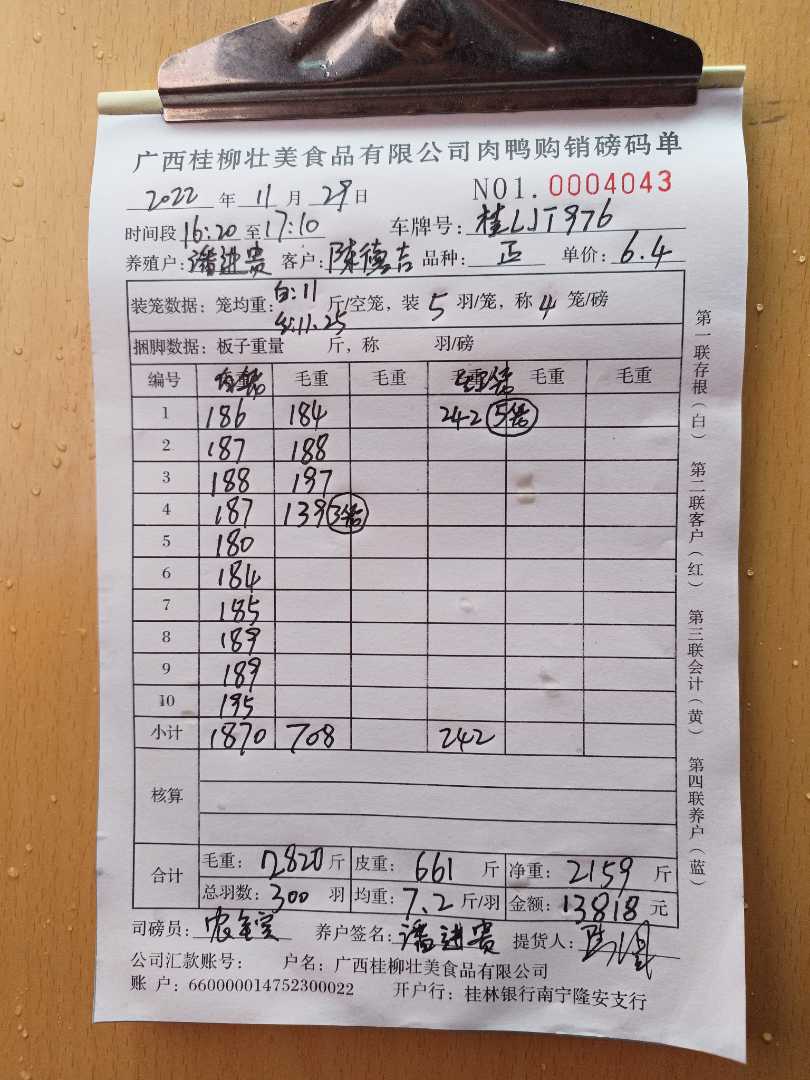 广西桂柳壮美食品有限公司肉鸭购销磅码单
2022 年 11 月 29 日 NO1. 0004043
时间段 16:20 至 17:10 车牌号: 桂LJT976
养殖户: 潘进贵 客户: 陈德吉 品种: 正 单价: 6.4
装笼数据: 笼均重: 白:11 斤/空笼, 装 5 羽/笼, 称 4 笼/磅
11.25
捆脚数据: 板子重量 斤, 称 羽/磅
编号 毛重 毛重 毛重 毛重
1 186 184 242 5笼
2 187 188
3 188 197
4 187 139 3笼
5 180
6 184
7 185
8 189
9 189
10 195
小计 1870 708 242
核算
合计 毛重: 2820 斤 皮重: 661 斤 净重: 2159 斤
总羽数: 300 羽 均重: 7.2 斤/羽 金额: 13818 元
司磅员: 养户签名: 潘进贵 提货人:
公司汇款账号: 户名: 广西桂柳壮美食品有限公司
账 户: 660000014752300022 开户行: 桂林银行南宁隆安支行
第一联存根(白) 第二联客户(红) 第三联会计(黄) 第四联养户(蓝)